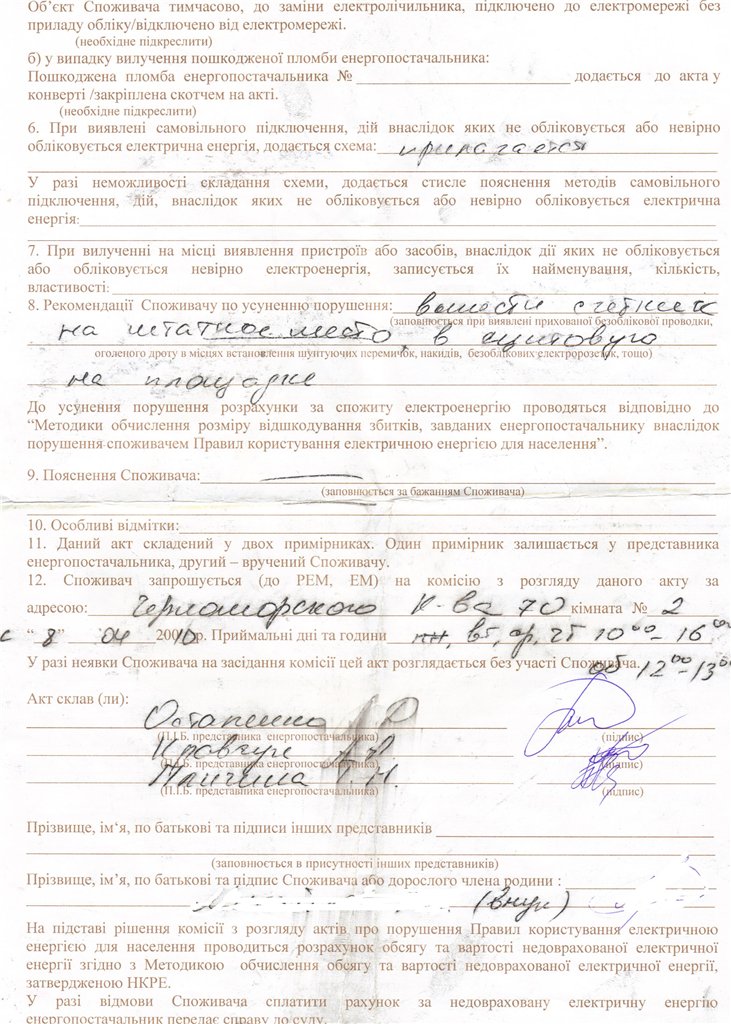 Об’єкт Споживача тимчасово, до заміни електролічильника, підключено до електромережі без
приладу обліку/відключено від електромережі.
(необхідне підкреслити)
б) у випадку вилучення пошкодженої пломби енергопостачальника:
Пошкоджена пломба енергопостачальника № додається до акта у
конверті /закріплена скотчем на акті.
(необхідне підкреслити)
6. При виявлені самовільного підключення, дій внаслідок яких не обліковується або невірно
обліковується електрична енергія, додається схема: прилагается
У разі неможливості складання схеми, додається стисле пояснення методів самовільного
підключення, дій, внаслідок яких не обліковується або невірно обліковується електрична
енергія:
7. При вилученні на місці виявлення пристроїв або засобів, внаслідок дії яких не обліковується
або обліковується невірно електроенергія, записується їх найменування, кількість,
властивості:
8. Рекомендації Споживачу по усуненню порушення: вынести счетчик
(заповнюється при виявлені прихованої безоблікової проводки,
на штатное место, в щитовую
оголеного дроту в місцях встановлення шунтуючих перемичок, накидів, безоблікових електророзеток, тощо)
на площадке
До усунення порушення розрахунки за спожиту електроенергію проводяться відповідно до
“Методики обчислення розміру відшкодування збитків, завданих енергопостачальнику внаслідок
порушення споживачем Правил користування електричною енергією для населення”.
9. Пояснення Споживача:
(заповнюється за бажанням Споживача)
10. Особливі відмітки:
11. Даний акт складений у двох примірниках. Один примірник залишається у представника
енергопостачальника, другий – вручений Споживачу.
12. Споживач запрошується (до РЕМ, ЕМ) на комісію з розгляду даного акту за
адресою: Черноморского К-ва 70 кімната № 2
с “ 8” 04 200 10 р. Приймальні дні та години пн, вт, ср, чт 10⁰⁰ – 16⁰⁰
У разі неявки Споживача на засідання комісії цей акт розглядається без участі Споживача. об 12⁰⁰-13⁰⁰
Акт склав (ли):
Остапенко А Р
(П.І.Б. представника енергопостачальника) (підпис)
Кравчук
(П.І.Б. представника енергопостачальника) (підпис)
(П.І.Б. представника енергопостачальника) (підпис)
Прізвище, ім‘я, по батькові та підписи інших представників
(заповнюється в присутності інших представників)
Прізвище, ім’я, по батькові та підпис Споживача або дорослого члена родини :
(внук)
На підставі рішення комісії з розгляду актів про порушення Правил користування електричною
енергією для населення проводиться розрахунок обсягу та вартості недоврахованої електричної
енергії згідно з Методикою обчислення обсягу та вартості недоврахованої електричної енергії,
затвердженою НКРЕ.
У разі відмови Споживача сплатити рахунок за недовраховану електричну енергію
енергопостачальник передає справу до суду.